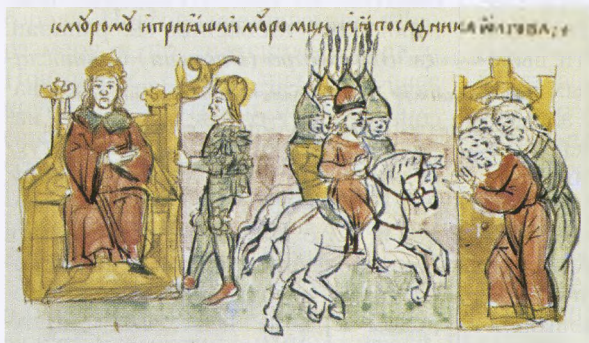 кмꙋромꙋ ипрнѧшаи мꙋромци иѧ посадника ѡлгова;+